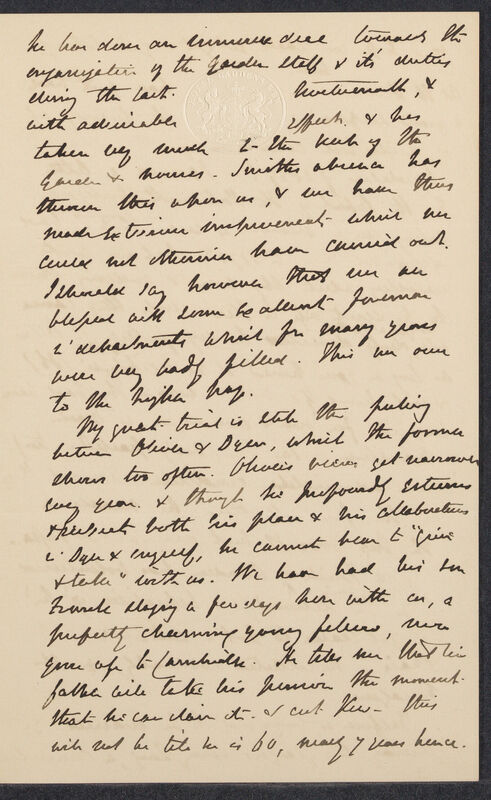 he has done an immense deal towards the
organization of the Garden Staff & it's duties
during the last. twelvemonth, &
with admirable effect. & has
taken very much to the work of the
Garden & houses. Smith's absence has
thrown this upon us, & we have thus
made extensive improvements which we
could not otherwise have carried out.
I should say however that we are
blessed with some excellent foremen
i' departments which for many years
were very badly filled. This we owe
to the higher pay.
My great trial is still the feeling
between Oliver & Dyer, which the former
shows too often. Oliver's views get narrower
every year. & though he profoundly esteems
& respects both his place & his collaborators
i' Dyer & myself, he cannot bear to "give
& take" with us. We have had his son
Frank staying a few days here with us, a
perfectly charming young fellow, now
gone up to Cambridge. He tells me that his
father will take his pension the moment
that he can claim it. & cut Kew – this
will not be till he is 60, nearly 7 years hence.